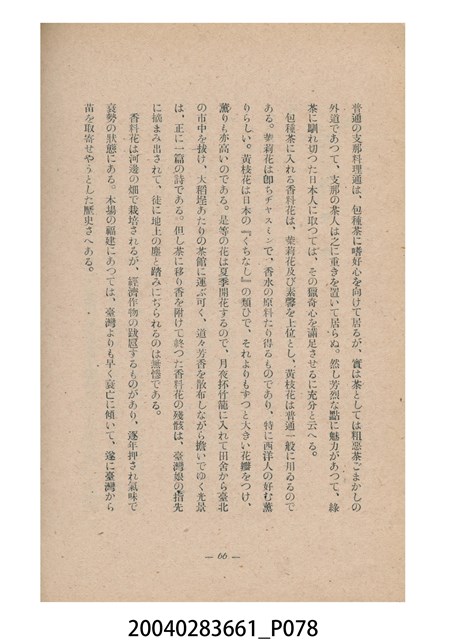 普通の支那料理通は、包種茶に嗜好心を向けて居るが、實は茶としては粗惡茶ごまかしの
外道であつて、支那の茶人は之に重きを置いて居らぬ。然し芳烈な點に魅力があつて、綠
茶に馴れ切つた日本人に取つては、その獵奇心を滿足させるに充分と云へる。
包種茶に入れる香料花は、茉莉花及び素馨を上位とし、黃枝花は普通一般に用ゐるので
ある。茉莉花は卽ちヂヤスミンで、香水の原料たり得るものであり、特に西洋人の好む薰
りらしい。黃枝花は日本の『くちなし』の類ひで、それよりもずつと大きい花瓣をつけ、
薰りも亦高いのである。是等の花は夏季開花するので、月夜抔竹籠に入れて田舍から臺北
の市中を拔け、大稻埕あたりの茶館に運ぶ可く、道々芳香を散布しながら擔いでゆく光景
は、正に一篇の詩である。但し茶に移り香を附けて終つた香料花の殘骸は、臺灣娘の指先
に摘まみ出されて、徒に地上の塵と踏みにぢられるのは無慘である。
香料花は河邊の畑で栽培されるが、經濟作物の跋扈するものがあり、逐年押され氣味で
衰勢の狀態にある。本場の福建にあつては、臺灣よりも早く衰亡に傾いて、遂に臺灣から
苗を取寄せやうとした歷史さへある。
— 66 —
20040283661_P078